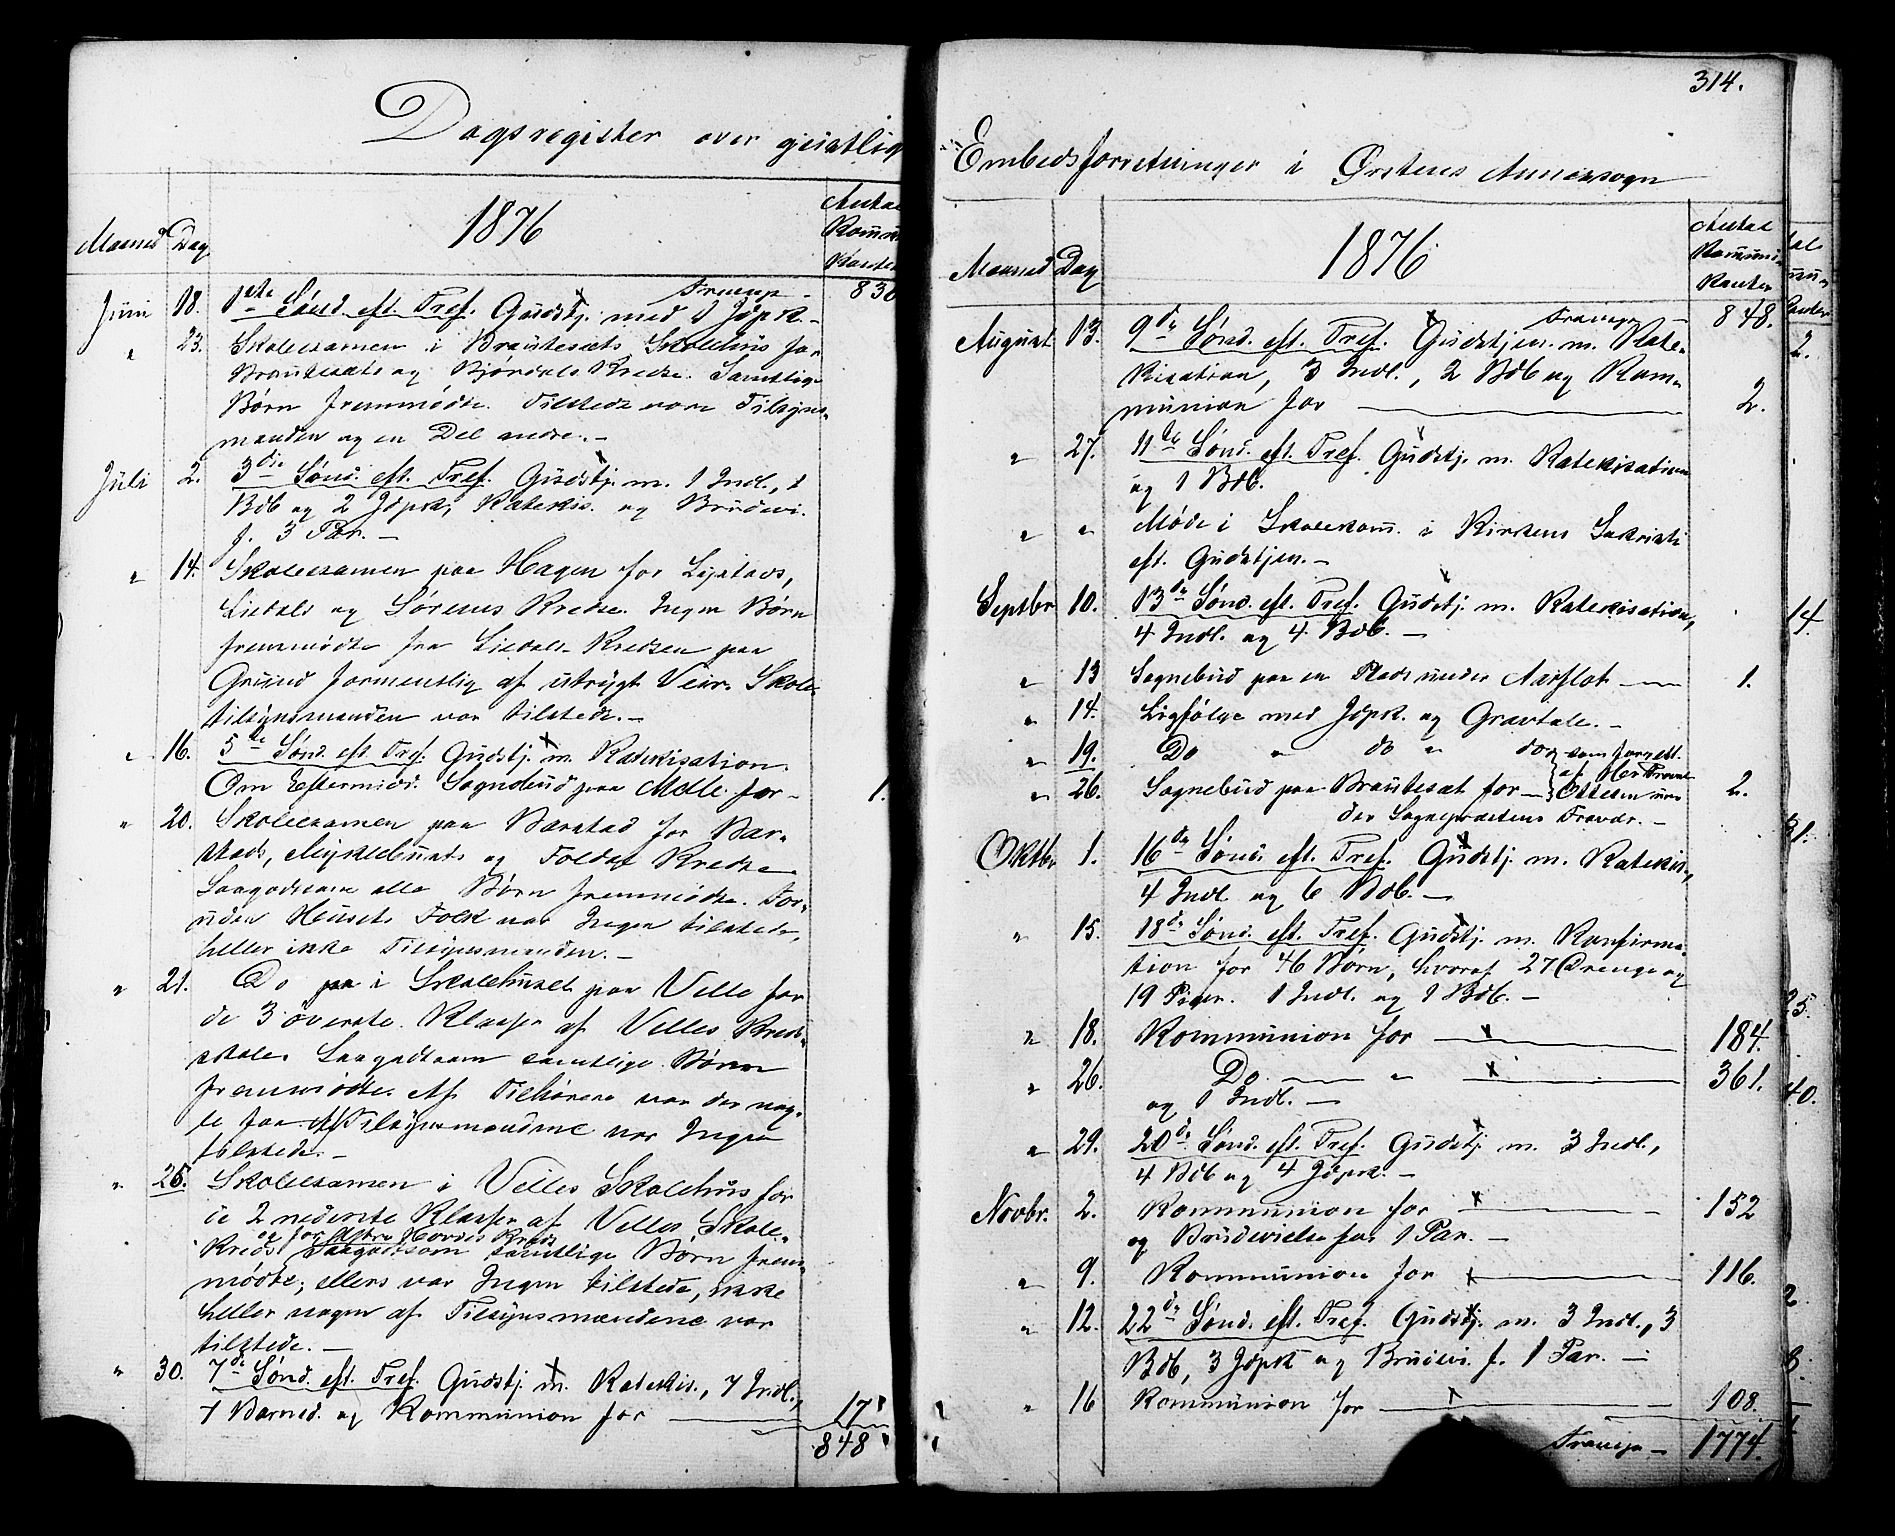 314.
Dagsregister over geistlig
Embedsforretninger i Ørstens Annexsogn
Maaned Dag 1876 Antal Kommunikanter
Transp. 830
Juni 18. 1ste Sønd. eft. Tref. Gudstj. med 1 Jdpk. –
" 23. Skoleexamen i Brautesæts Skolehus for
Brautesæts og Bjørdals Kredse. Samtlige
Børn fremmødte. Tilstede vare Tilsyns-
manden og en Del andre. –
Juli 2. 3die Sønd. eft. Tref. Gudstj. m. 1 Indl., 1
Bdb og 2 Jdpk, Katekis. og Brudevi.
f. 3 Par. –
" 14. Skoleexamen paa Hagen for
og Kredse. Ingen Børn
fremmødte fra Kredsen paa
Grund formentlig af utrygt Veir. Skole-
tilsynsmanden var tilstede. –
" 16. 5te Sønd. eft. Tref. Gudstj. m. Katekisation.
Om Eftermidd. Sognebud paa Melle for – 1.
" 20. Skoleexamen paa Barstad for Bar-
stads, Myklebusts og Foldal Kredse
Saagodtsom alle Børn fremmødte. For-
uden Husets Folk var Ingen tilstede,
heller ikke Tilsynsmanden. –
" 21. Do i Skolehuset paa Velle for
de 3 øverste Klasser af Velles Kreds-
skole. Saagodtsom samtlige Børn
fremmødte. Af Tilhørere var der nog-
le faa. Af Tilsynsmændene var Ingen
tilstede. –
" 25. Skoleexamen i Velles Skolehus for
de 2 nederste Klasser af Velles Skole-
og for Hovdes Kreds
Kreds, Saagodtsom samtlige Børn frem-
mødte; ellers var Ingen tilstede, ikke
heller nogen af Tilsynsmændene var
tilstede. –
" 30. 7de Sønd. eft. Tref. Gudstj. m. Katekis., 7 Indl.,
7 Barned. og Kommunion for – 17
848
Maaned Dag 1876. Antal Kommunikanter
Transp. – 848.
August 13. 9de Sønd. eft. Tref. Gudstjen. m. Kate-
kisation, 3 Indl., 2 Bdb og Kom-
munion for – 2.
" 27. 11te Sønd. eft. Tref. Gudstj. m. Katekisation
og 1 Bdb.
" " Møde i Skolekom. i Kirkens Sakristi
eft. Gudstjen. –
Septbr. 10. 13de Sønd. eft. Tref. Gudstj. m. Katekisation,
4 Indl. og 4 Bdb. –
" 13 Sognebud paa en Plads under Aarflot – 1.
" 14. Ligfølge med Jdpk. og Gravtale. –
" 19. Do " do " do, som forrett.
" 26. Sognebud paa Brautesæt for – af Her Provst Ottesen un- 2.
der Sognepræstens Fravær. –
Oktbr. 1. 16de Sønd. eft. Tref. Gudstj. m. Katekis.,
4 Indl. og 6 Bdb. –
" 15. 18de Sønd. eft. Tref. Gudstj. m. Konfirma-
tion for 46 Børn, hvoraf 27 Drenge og
19 Piger. 1 Indl. og 1 Bdb. –
" 18. Kommunion for – 184.
" 26. Do – " – 361.
og 1 Indl. –
" 29. 20de Sønd. eft. Tref. Gudstj. m. 3 Indl.,
4 Bdb og 4 Jdpk. –
Novbr. 2. Kommunion for – 152
og Brudevielse for 1 Par. –
" 9. Kommunion for – 116.
" 12. 22de Sønd. eft. Tref. Gudstj. m. 3 Indl., 3
Bdb, 3 Jdpk og Brudevi. f. 1 Par. –
" 16 Kommunion for – 108.
Transp – 1774.